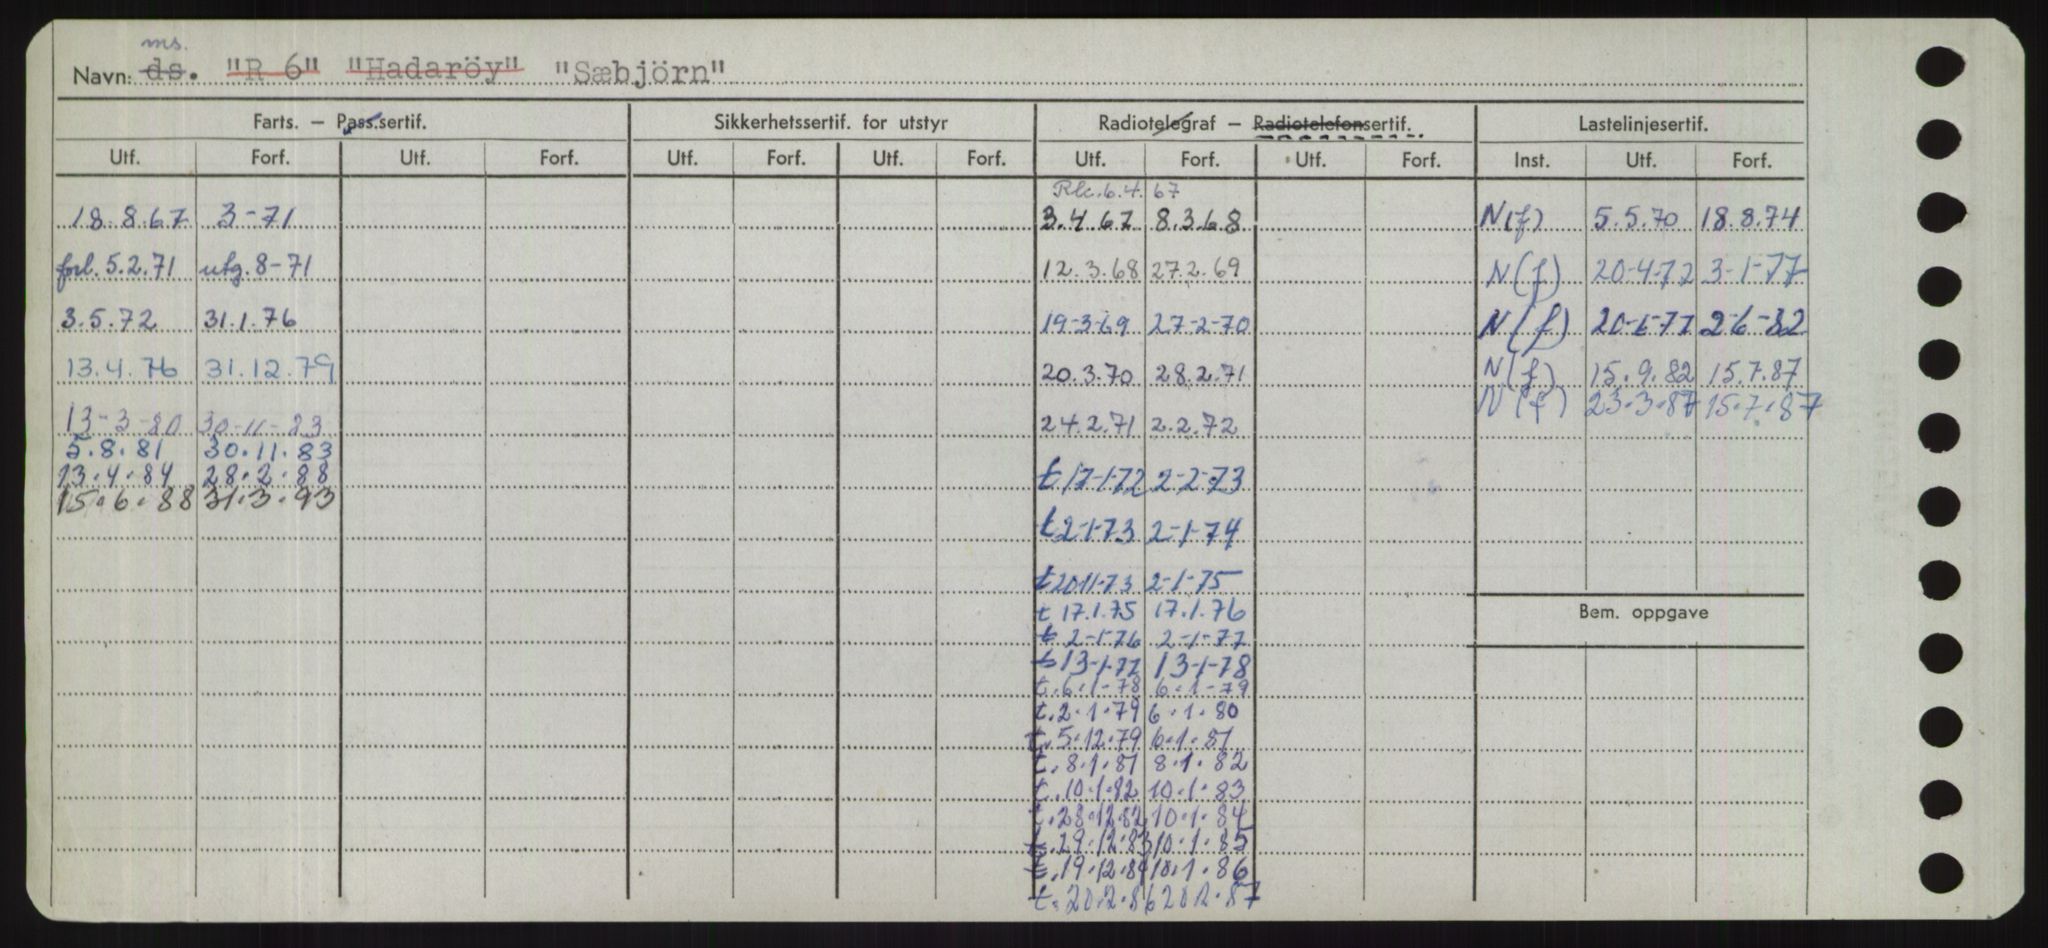 ms.
Navn: ds. "R 6" "Hadaröy" "Sæbjörn"
Farts. — Pass.sertif. Sikkerhetssertif. for utstyr Radiotelegraf — Radiotelefonsertif. Lastelinjesertif.
Utf. Forf. Utf. Forf. Utf. Forf. Utf. Forf. Utf. Forf. Utf. Forf. Inst. Utf. Forf.
Rlc. 6.4.67
18.8.67 3-71 3.4.67 8.3.68 N(f) 5.5.70 18.8.74
forl. 5.2.71 utg. 8-71 12.3.68 27.2.69 N(f) 20-4-72 3-1-77
3.5.72 31.1.76 19-3-69 27-2-70 N(f) 20-1-77 2-6-82
13.4.76 31.12.79 20.3.70 28.2.71 N(f) 15.9.82 15.7.87
N(f) 23.3.87 15.7.87
13-3-80 30-11-83 24.2.71 2.2.72
5.8.81 30.11.83
13.4.84 28.2.88 t 17-1-72 2-2-73
15.6.88 31.3.93
t 2-1-73 2-1-74
t 20-11-73 2-1-75
t 17.1.75 17.1.76
Bem. oppgave
t 2-1-76 2-1-77
t 13-1-77 13-1-78
t. 6.1-78 6.1-79
t. 2.1.79 6.1.80
t. 5.12.79 6.1.81
t. 8.1.81 8.1.82
t. 10.1.82 10.1.83
t. 28.12.82 10.1.84
t. 29.12.83 10.1.85
t. 19.12.84 10.1.86
t. 20.2.86 20.2.87